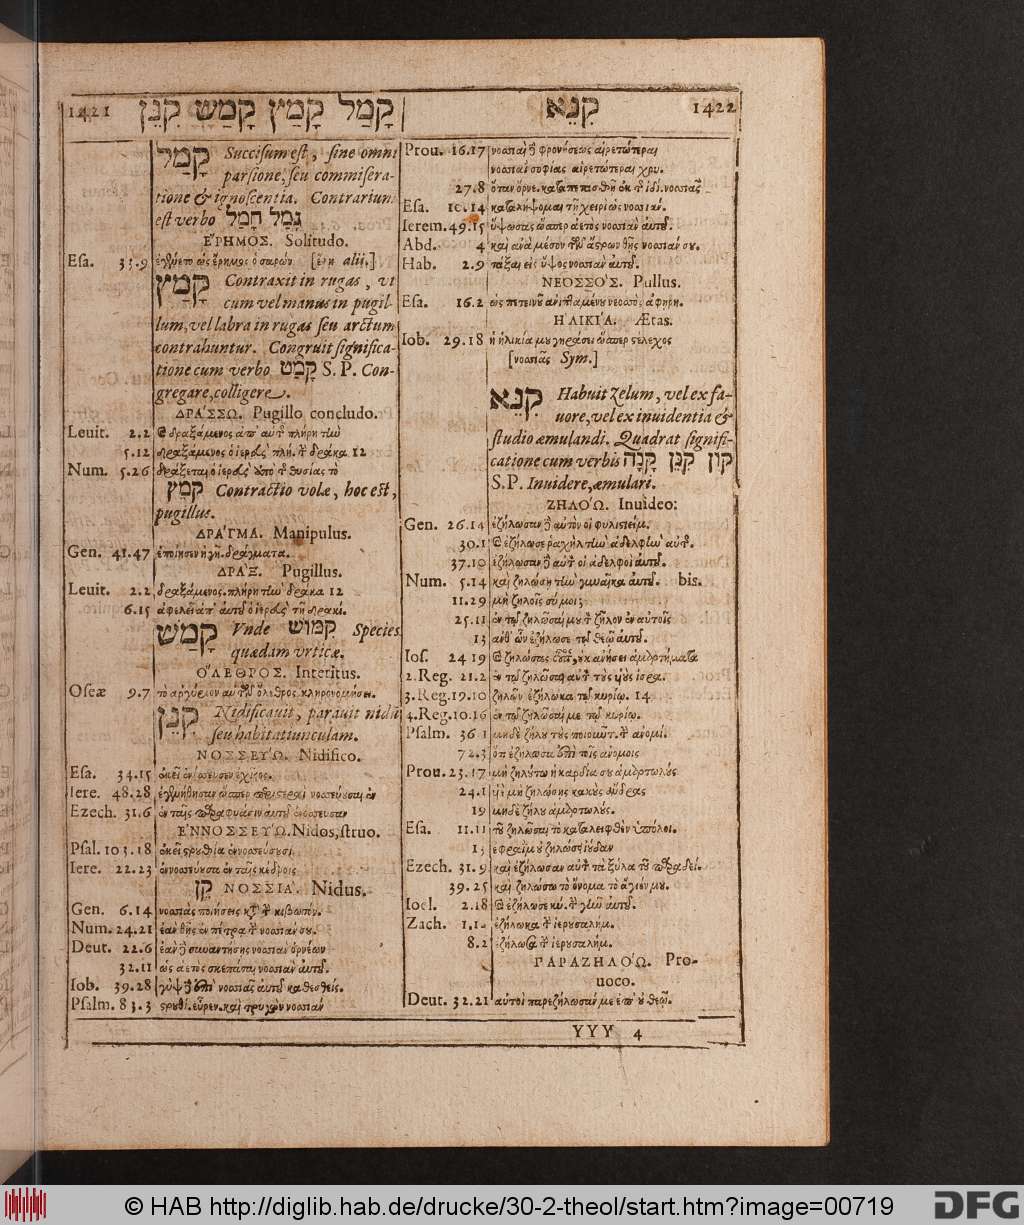 1421 קָמַל קָמַץ קָמַשׁ קִנֵּן
קִנֵּא 1422
קָמַל Succisum est, sine omni
parsione, seu commisera-
tione & ignoscentia. Contrarium
est verbo גָּמַל חָמַל
ἜΡΗΜΟΣ. Solitudo.
Esa. 33.9 ἐγένετο ὡς ἕρημος ὁ σαρών [alii.]
קָמַץ Contraxit in rugas, vt
cum vel manus in pugil-
lum, vel labra in rugas seu arctum
contrahuntur. Congruit significa-
tione cum verbo קָמַט S. P. Con-
gregare, colligere.
ΔΡΑΣΣΩ. Pugillo concludo.
Leuit. 2.2 & δραξάμενος ἀπ' αὐτῆς πλήρη τὴν
5.12 δραξάμενος ὁ ἱερεὺς πλή. τ̀ δράκα 12
Num. 5.26 δράξεται ὁ ἱερεὺς ἀπὸ τ̀ θυσίας τὸ
קֹמֶץ Contractio volæ, hoc est,
pugillus.
ΔΡΑΓΜΑ. Manipulus.
Gen. 41.47 ἐποίησεν ἡ γῆ. δράγματα.
ΔΡΑΞ. Pugillus.
Leuit. 2.2 δραξάμενος. πλήρη τὴν δράκα 12
6.15 ἀφελεῖ ἀπ' αὐτοῦ ὁ ἱερεὺς τῇ δρακί.
קָמַשׁ Vnde קִמּוֹשׁ Species
quædam vrticæ.
ὌΛΕΘΡΟΣ. Interitus.
Oseæ 9.7 τὸ ἀργύριον αὐτῶν ὄλεθρος κληρονομήσει.
קִנֵּן Nidificauit, parauit nidū
seu habitatiunculam.
ΝΟΣΣΕΥΩ. Nidifico.
Esa. 34.15 ἐκεῖ ἐνόσευσεν ἐχῖνος.
Iere. 48.28 ἐγενήθησαν ὥσπερ περιστεραὶ νοσεύουσαι ἐν
Ezech. 31.6 ἐν ταῖς παραφυάσιν αὐτοῦ ἐνόσευσαν
ἘΝΝΟΣΣΕΥΩ. Nidos, struo.
Psal. 103.18 ἐκεῖ στρουθία ἐννοσεύσουσι
Iere. 22.23 ἐννοσεύουσα ἐν ταῖς κέδροις
קֵן ΝΟΣΣΙΑ. Nidus.
Gen. 6.14 νοσσιὰς ποιήσεις κτ̀ τ̀ κιβωτόν.
Num. 24.21 ἐὰν θῇς ἐν πέτρα τ̀ νοσσιάν σου.
Deut. 22.6 ἐὰν ἢ συναντήσης νοσσιᾷ ὀρνέων
32.11 ὡς ἀετὸς σκεπάσαι νοσσιὰν αὐτοῦ.
Iob. 39.28 γὺψ ἐπὶ νοσσιᾶς αὐτοῦ καθεσθείς.
Psalm. 83.3 στρουθί. εὗρεν. καὶ τρυγὼν νοσσιὰν
Prou. 16.17 νοσσιαὶ φρονήσεως αἱρετώτεραι
νοσσιαὶ σοφίας αἱρετώτεραι χρυ.
27.8 ὅταν ὄρνε. καταπετασθῇ ἐκ τ̀ ἰδί. νοσσιᾶς
Esa. 10.14 καταλήψομαι τῇ χειρὶ ὡς νοσσιάν.
Ierem. 49.15 ὕψωσας ὥσπερ ἀετὸς νοσσιὰν αὐτοῦ.
Abd. 4 καὶ ἀνὰ μέσον τῶν ἄστρων θῇς νοσσιάν σου.
Hab. 2.9 τάξαι εἰς ὕψος νοσσιὰν αὐτοῦ.
ΝΕΟΣΣΟΣ. Pullus.
Esa. 16.2 ὡς πετεινοῦ ἀνιπταμένου νεοσσὸς ἀφῃρη.
ἩΛΙΚΙΑ. Ætas.
Iob. 29.18 ἡ ἡλικία μου γηράσει ὥσπερ στέλεχος
[νοσσιᾶς Sym.]
קִנֵּא Habuit Zelum, vel ex fa-
uore, vel ex inuidentia &
studio æmulandi. Quadrat signifi-
catione cum verbis קוּן קִנֵּן קָנָה
S. P. Inuidere, æmulari.
ΖΗΛΟΩ. Inuideo:
Gen. 26.14 ἐζήλωσαν αὐτὸν οἱ φυλιστιείμ.
30.1 & ἐζήλωσε ραχὴλ τὴν ἀδελφὴν αὐτ̀.
37.10 ἐζήλωσαν αὐτ̀ οἱ ἀδελφοὶ αὐτοῦ.
Num. 5.14 καὶ ζηλώσῃ τὴν γυναῖκα αὐτοῦ. bis.
11.29 μὴ ζηλοῖς σύ μοις
25.11 ἐν τῷ ζηλῶσαί μου τ̀ ζῆλον ἐν αὐτοῖς
13 ἀνθ' ὧν ἐζήλωσε τῷ θεῷ αὐτοῦ.
Ios. 24 19 & ζηλώσας οὗτος, οὐκ ἀνήσει ἁμαρτήματα
2. Reg. 21.2 ἐν τῷ ζηλῶσαι αὐτ̀ τοὺς υἱοὺς ἰσρα.
3. Reg. 19.10 ζηλῶν ἐζήλωκα τῷ κυρίῳ. 14
4. Reg. 10.16 ἐν τῷ ζηλῶσαί με τῷ κυρίῳ.
Psalm. 36 1 μηδὲ ζήλου τοὺς ποιοῦντ. τ̀ ἀνομί.
72.3 ὅτι ἐζήλωσα ἐπὶ τοῖς ἀνόμοις
Prou. 23.17 μὴ ζηλούτω ἡ καρδία σου ἁμαρτωλούς
24.1 υἱὲ μὴ ζηλώσῃς κακοὺς ἄνδρας
19 μηδὲ ζήλου ἁμαρτωλούς.
Esa. 11.11 τοῦ ζηλῶσαι τὸ καταλειφθὲν ὑπόλοι.
13 ἐφραὶμ οὐ ζηλώσει ἰούδαν
Ezech. 31.9 καὶ ἐζήλωσαν αὐτ̀ τὰ ξύλα τοῦ παραδεί.
39.25 καὶ ζηλώσω τὸ ὄνομα τὸ ἅγιόν μου.
Ioel. 2.18 & ἐζήλωσε κύ. τ̀ γῆν αὐτοῦ.
Zach. 1.14 ἐζήλωκα τ̀ ἱερουσαλήμ.
8.2 ἐζήλωσα τ̀ ἱερουσαλήμ.
ΠΑΡΑΖΗΛΟΩ. Pro-
uoco.
Deut. 32.21 αὐτοὶ παρεζήλωσάν με ἐπ' οὐ θεῷ.
YYY 4
© HAB http://diglib.hab.de/drucke/30-2-theol/start.htm?image=00719
DFG